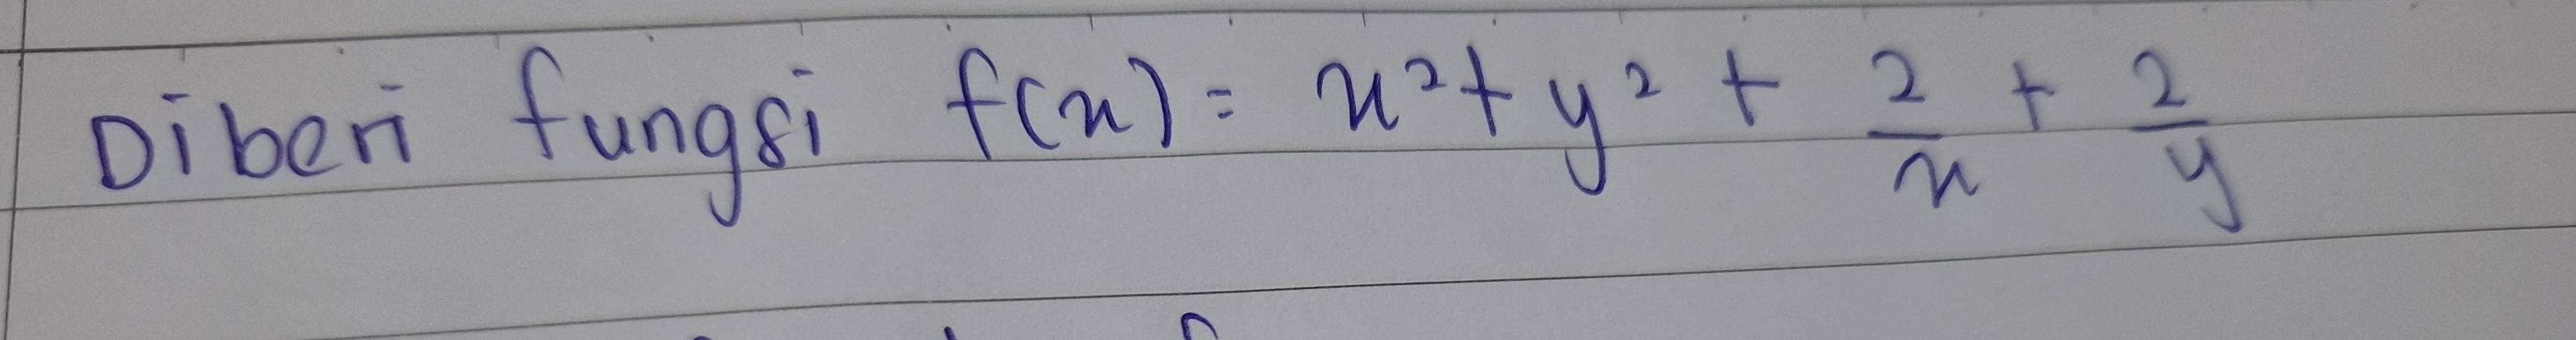 Diberi fungsi f(x) = x² + y² + 2/x + 2/y